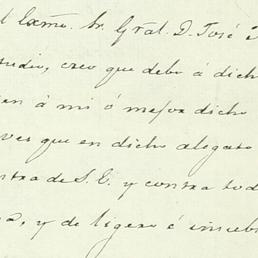 l Exmo. Sr. Gral. D. José
creo que debo á dicho
á mi ó mejor dicho
que en dicho alegato
de S. E. y contra tod
y de ligero é